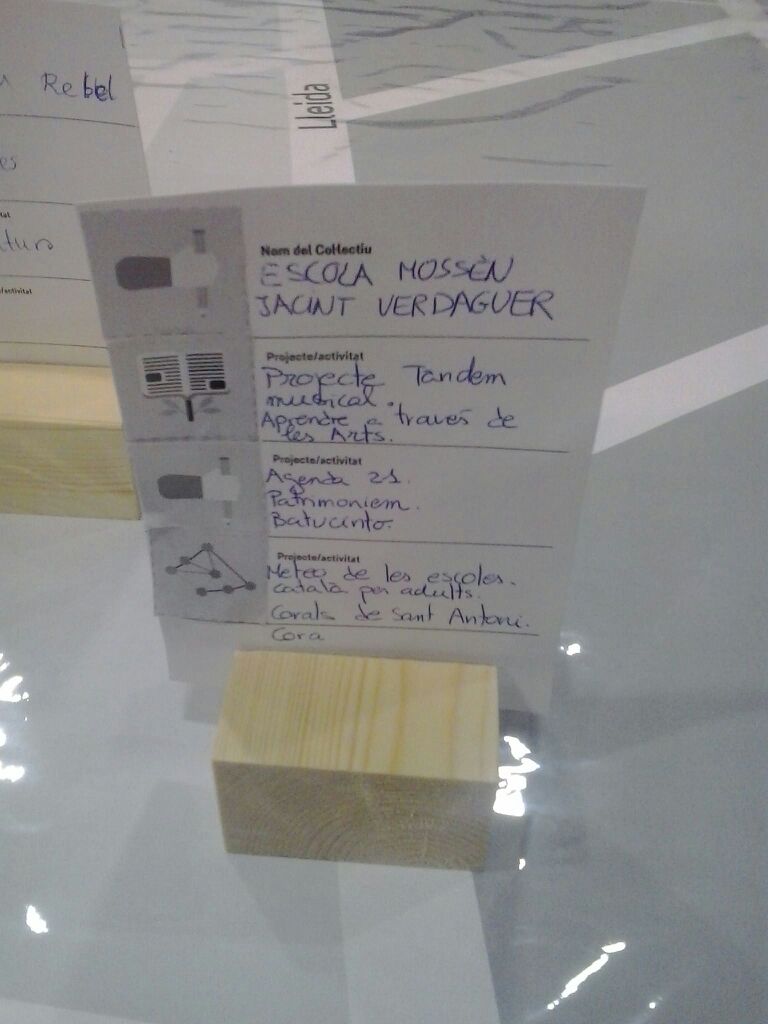 Rebel
Lleida
Nom del Col·lectiu
ESCOLA MOSSÈN
JACINT VERDAGUER
Projecte/activitat
Projecte Tàndem
musical.
Aprendre a través de
les Arts.
Projecte/activitat
Agenda 21.
Patrimoniem.
Batucinto.
Projecte/activitat
Meteo de les escoles.
Català per adults.
Corals de Sant Antoni.
Cora